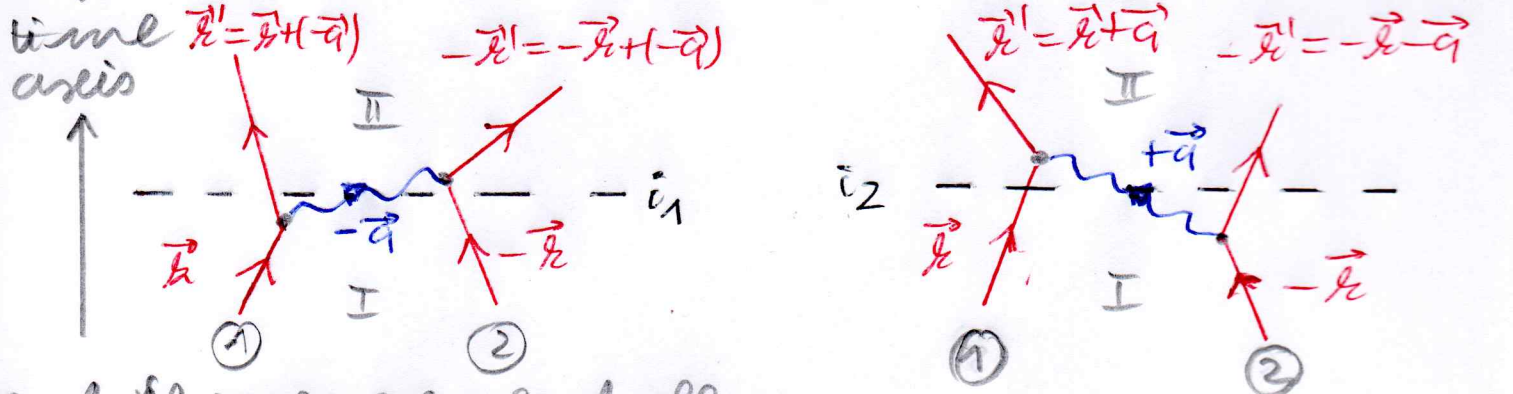 time
axis
k⃗' = k⃗ + (-q⃗)
-k⃗' = -k⃗ + (-q⃗)
II
i₁
-q⃗
k⃗
-k⃗
I
1
2
k⃗' = k⃗ + q⃗
-k⃗' = -k⃗ - q⃗
II
+q⃗
i₂
k⃗
I
-k⃗
1
2